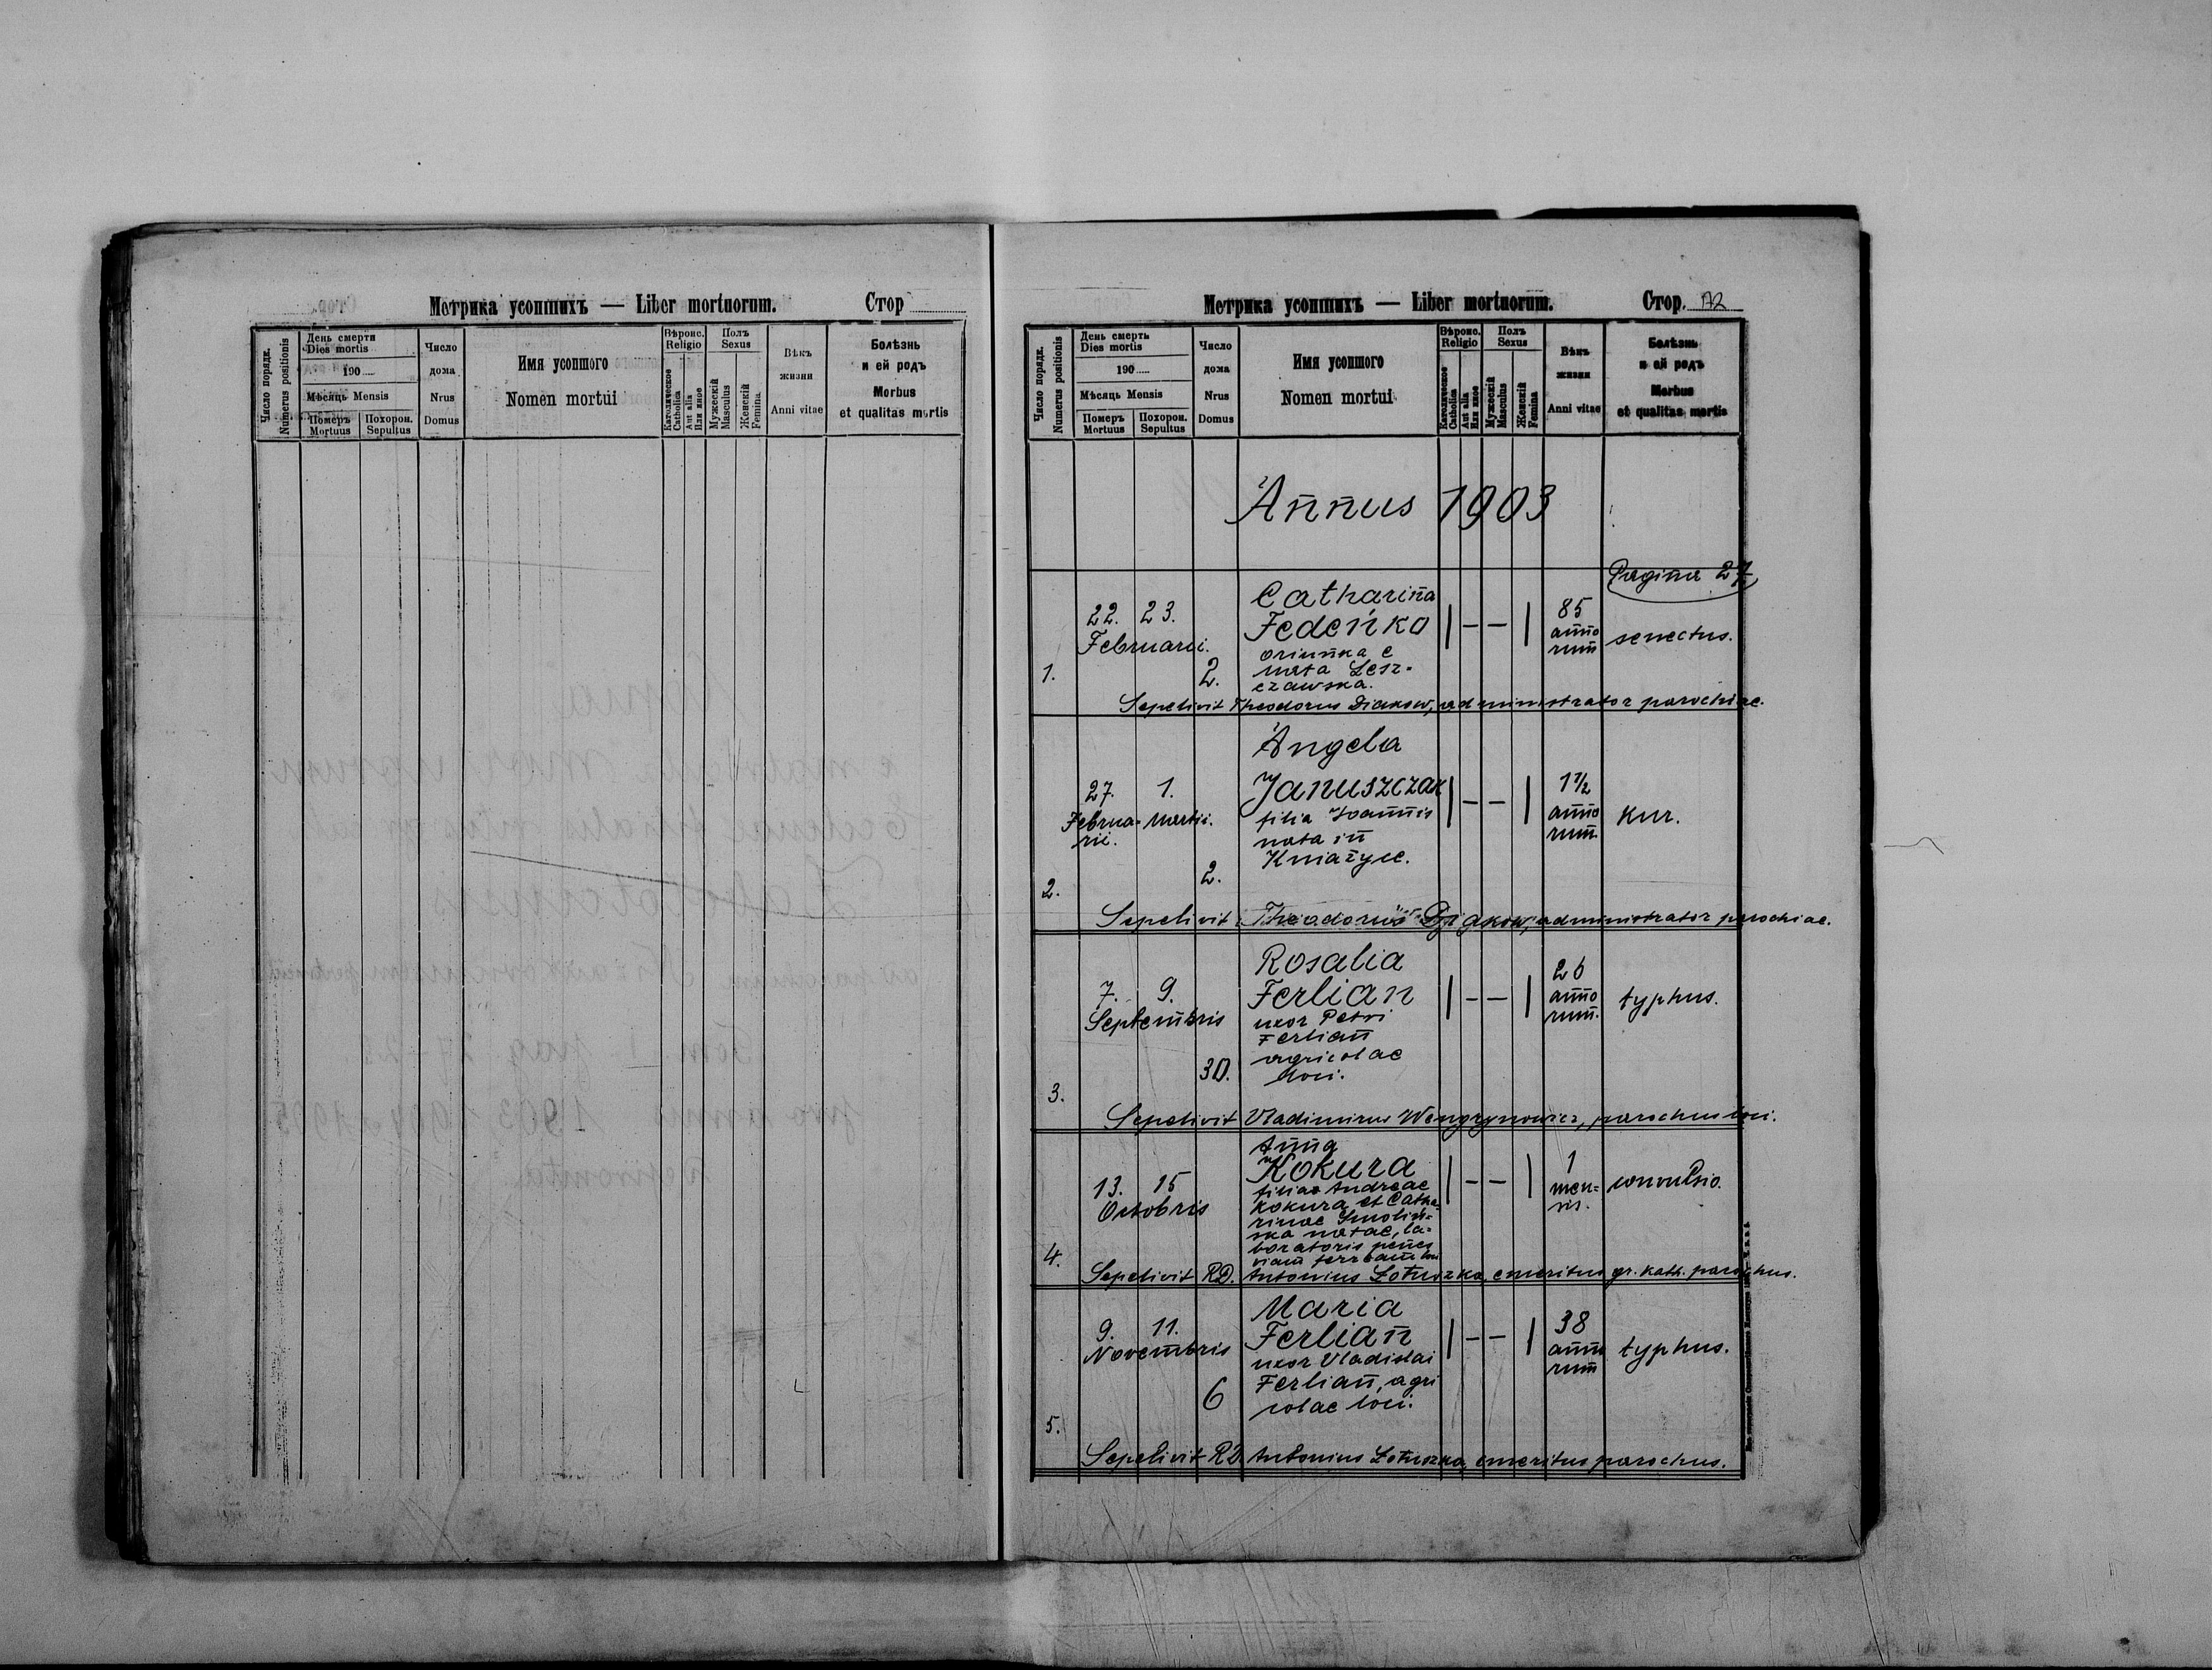 Метрика усопшихъ — Liber mortuorum. Стор
Число порядк. Numerus positionis
День смерти
Dies mortis
190
Мѣсяць Mensis
Померъ Mortuus
Похорон. Sepultus
Число дома
Nrus Domus
Имя усопшого
Nomen mortui
Вѣроис. Religio
Католическое Catholica
Aut alia Или иное
Полъ Sexus
Мужескій Masculus
Женскій Femina
Вѣкъ жизни
Anni vitae
Болѣзнь и ей родъ
Morbus et qualitas mortis
Метрика усопшихъ — Liber mortuorum. Стор. 72
Число порядк. Numerus positionis
День смерть
Dies mortis
190
Мѣсяць Mensis
Померъ Mortuus
Похорон. Sepultus
Число дома
Nrus Domus
Имя усопшого
Nomen mortui
Вѣроис. Religio
Католическое Catholica
Aut alia Или иное
Полъ Sexus
Мужескій Masculus
Женскій Femina
Вѣкъ жизни
Anni vitae
Болѣзнь и ей родъ
Morbus et qualitas mortis
Annus 1903
Pagina 27
1.
22. 23.
Februarii.
2.
Catharina
Fedeńko
nata Lesz-
czawska.
85
anno
rum
senectus.
Sepelivit Theodorus Diakow, administrator parochiae.
2.
27. 1.
Februa- Martii.
rii.
2.
Angela
Januszczak
filia Joannis
nata in
Kniażyce.
1 1/2
anno
rum.
kur.
Sepelivit Theodorus Djakow, administrator parochiae.
3.
7. 9.
Septembris
30.
Rosalia
Ferlian
uxor Petri
Ferlian
agricolae
loci.
26
anno
rum.
typhus.
Sepelivit Vladimirus Wengrynowicz, parochus loci.
4.
13. 15
Octobris
Anna
Kokura
filia Andreae
Kokura et Catha-
rinae Smoliń-
ska natae, la-
boratoris penes
viam ferream
1
men-
sis.
convulsio.
Sepelivit RD. Antonius Łotuszka, emeritus gr. kath. parochus.
5.
9. 11.
Novembris
6
Maria
Ferlian
uxor Vladislai
Ferlian, agri
colae loci.
38
anno
rum
typhus.
Sepelivit RD. Antonius Łotuszka, emeritus parochus.